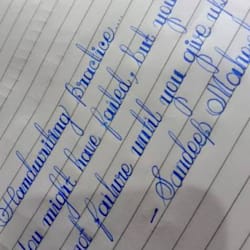 Handwriting practice...
You might have failed, but you
not failure until you give up
- Sandeep